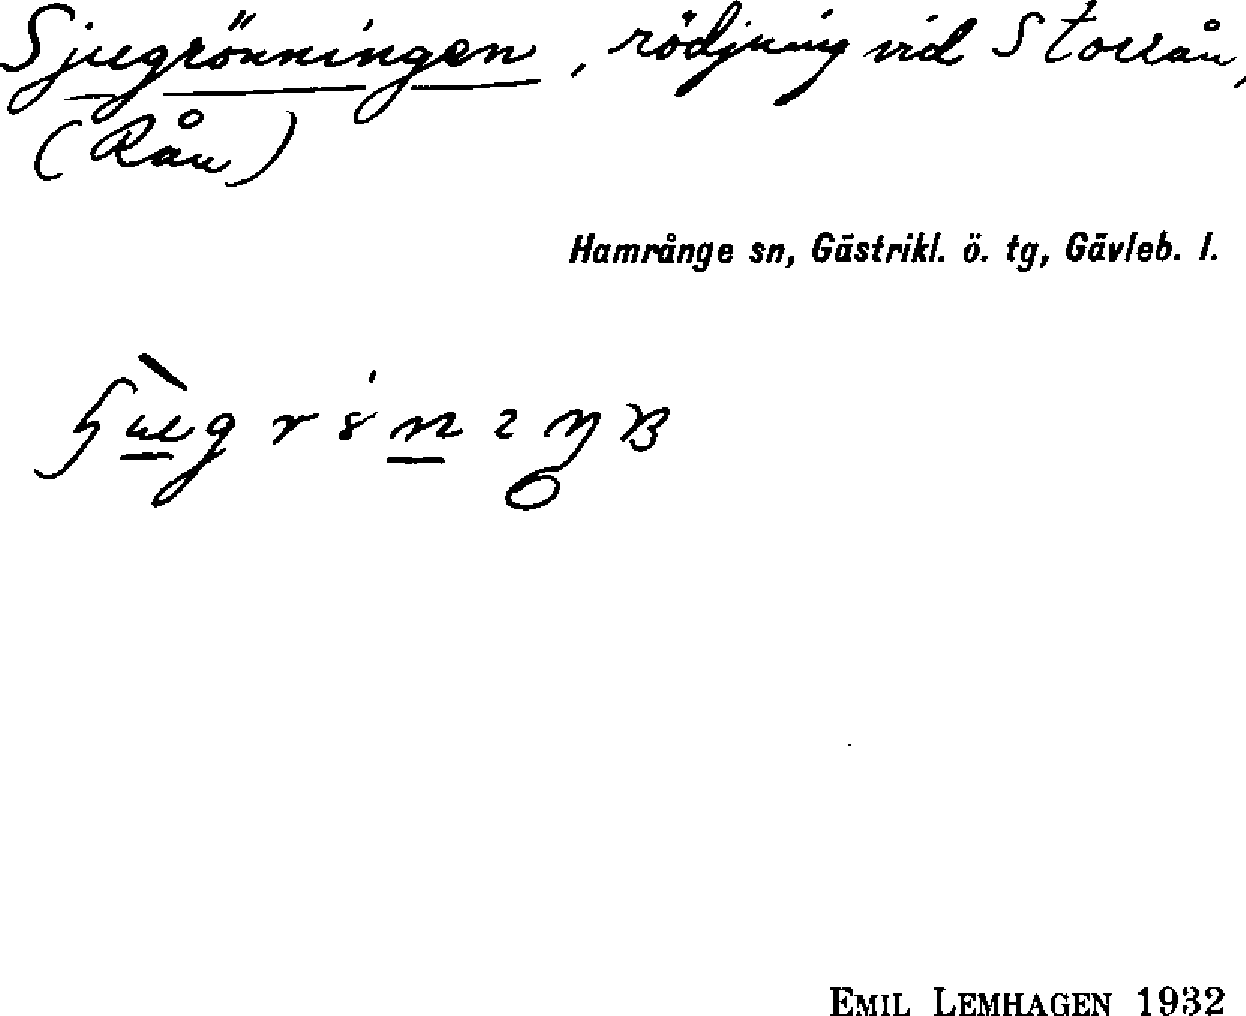 Sjugrönningen, rödjning vid Storån,
(Rån)
Hamrånge sn, Gästrikl. ö. tg, Gävleb. l.
EMIL LEMHAGEN 1932